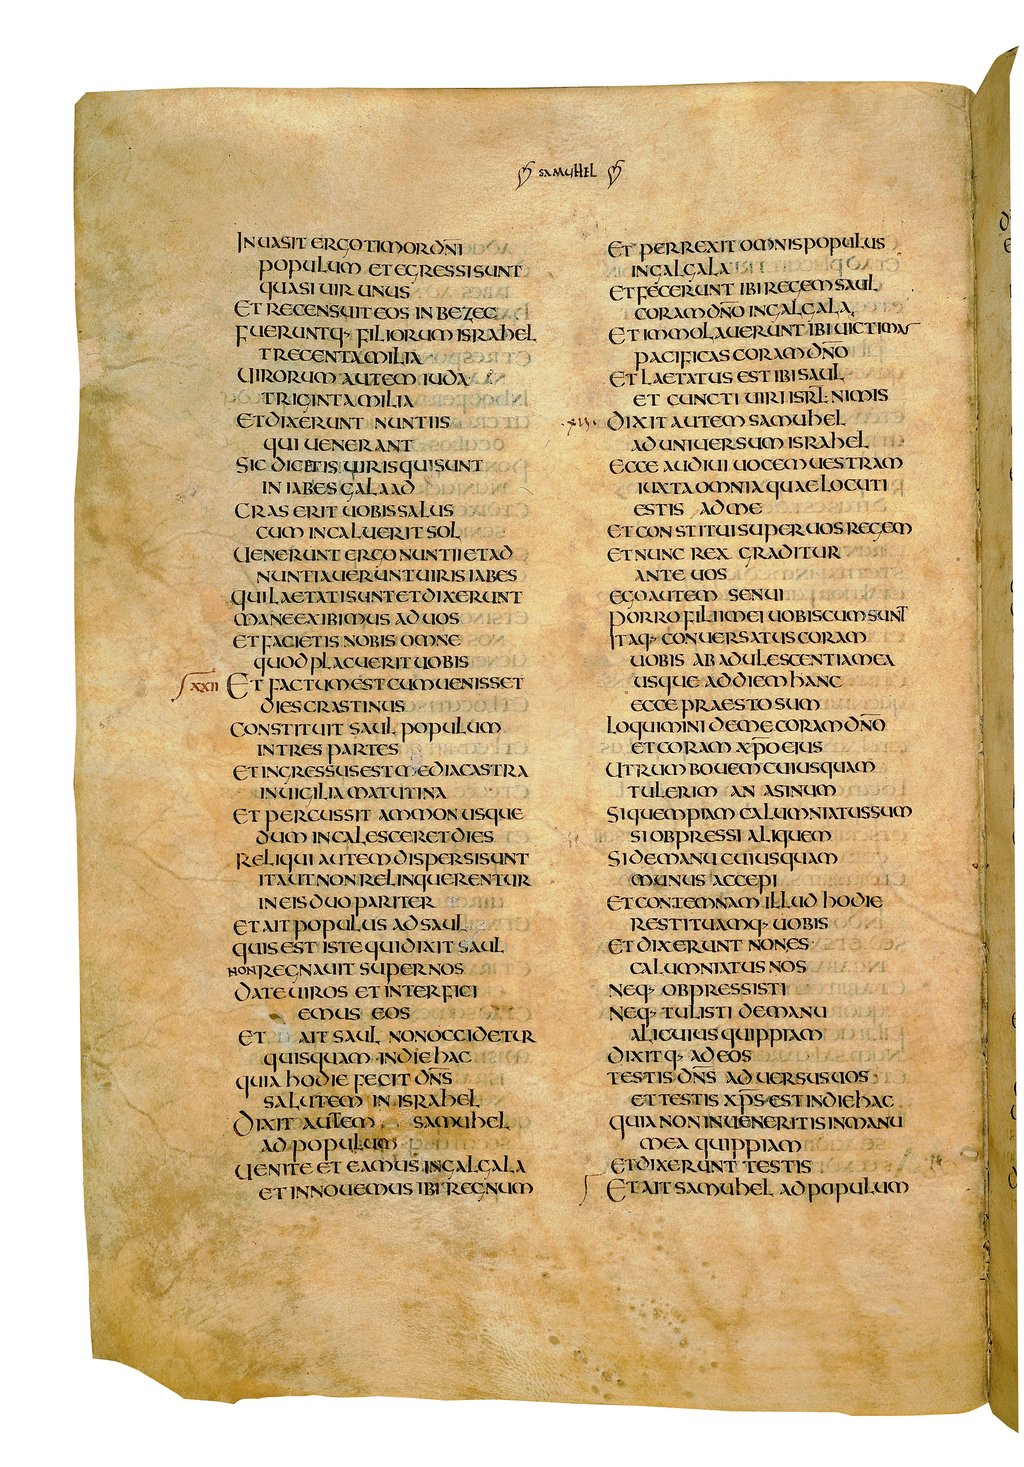 SAMUHEL
INUASIT ERGO TIMOR DNI
POPULUM ET EGRESSI SUNT
QUASI UIR UNUS
ET RECENSUIT EOS IN BEZEC
FUERUNTQ; FILIORUM ISRAHEL
TRECENTA MILIA
UIRORUM AUTEM IUDA
TRIGINTA MILIA
ET DIXERUNT NUNTIIS
QUI UENERANT
SIC DICETIS UIRIS QUI SUNT
IN IABES GALAAD
CRAS ERIT UOBIS SALUS
CUM INCALUERIT SOL
UENERUNT ERGO NUNTII ET AD
NUNTIAUERUNT UIRIS IABES
QUI LAETATI SUNT ET DIXERUNT
MANE EXIBIMUS AD UOS
ET FACIETIS NOBIS OMNE
QUOD PLACUERIT UOBIS
XXII ET FACTUM EST CUM UENISSET
DIES CRASTINUS
CONSTITUIT SAUL POPULUM
IN TRES PARTES
ET INGRESSUS EST MEDIA CASTRA
IN UIGILIA MATUTINA
ET PERCUSSIT AMMON USQUE
DUM INCALESCERET DIES
RELIQUI AUTEM DISPERSI SUNT
ITA UT NON RELINQUERENTUR
IN EIS DUO PARITER
ET AIT POPULUS AD SAUL
QUIS EST ISTE QUI DIXIT SAUL
NON REGNAUIT SUPER NOS
DATE UIROS ET INTERFICI
EMUS EOS
ET AIT SAUL NON OCCIDETUR
QUISQUAM IN DIE HAC
QUIA HODIE FECIT DNS
SALUTEM IN ISRAHEL
DIXIT AUTEM SAMUHEL
AD POPULUM
UENITE ET EAMUS IN GALGALA
ET INNOUEMUS IBI REGNUM
ET PERREXIT OMNIS POPULUS
IN GALGALA
ET FECERUNT IBI REGEM SAUL
CORAM DNO IN GALGALA
ET IMMOLAUERUNT IBI UICTIMAS
PACIFICAS CORAM DNO
ET LAETATUS EST IBI SAUL
ET CUNCTI UIRI ISRL NIMIS
DIXIT AUTEM SAMUHEL
AD UNIUERSUM ISRAHEL
ECCE AUDIUI UOCEM UESTRAM
IUXTA OMNIA QUAE LOCUTI
ESTIS AD ME
ET CONSTITUI SUPER UOS REGEM
ET NUNC REX GRADITUR
ANTE UOS
EGO AUTEM SENUI
PORRO FILII MEI UOBISCUM SUNT
ITAQ; CONUERSATUS CORAM
UOBIS AB ADULESCENTIA MEA
USQUE AD DIEM HANC
ECCE PRAESTO SUM
LOQUIMINI DE ME CORAM DNO
ET CORAM XPO EIUS
UTRUM BOUEM CUIUSQUAM
TULERIM AN ASINUM
SI QUEMPIAM CALUMNIATUS SUM
SI OBPRESSI ALIQUEM
SI DE MANU CUIUSQUAM
MUNUS ACCEPI
ET CONTEMNAM ILLUD HODIE
RESTITUAMQ; UOBIS
ET DIXERUNT NON ES
CALUMNIATUS NOS
NEQ; OBPRESSISTI
NEQ; TULISTI DE MANU
ALICUIUS QUIPPIAM
DIXITQ; AD EOS
TESTIS DNS ADUERSUS UOS
ET TESTIS XPS EST IN DIE HAC
QUIA NON INUENERITIS IN MANU
MEA QUIPPIAM
ET DIXERUNT TESTIS
ET AIT SAMUHEL AD POPULUM